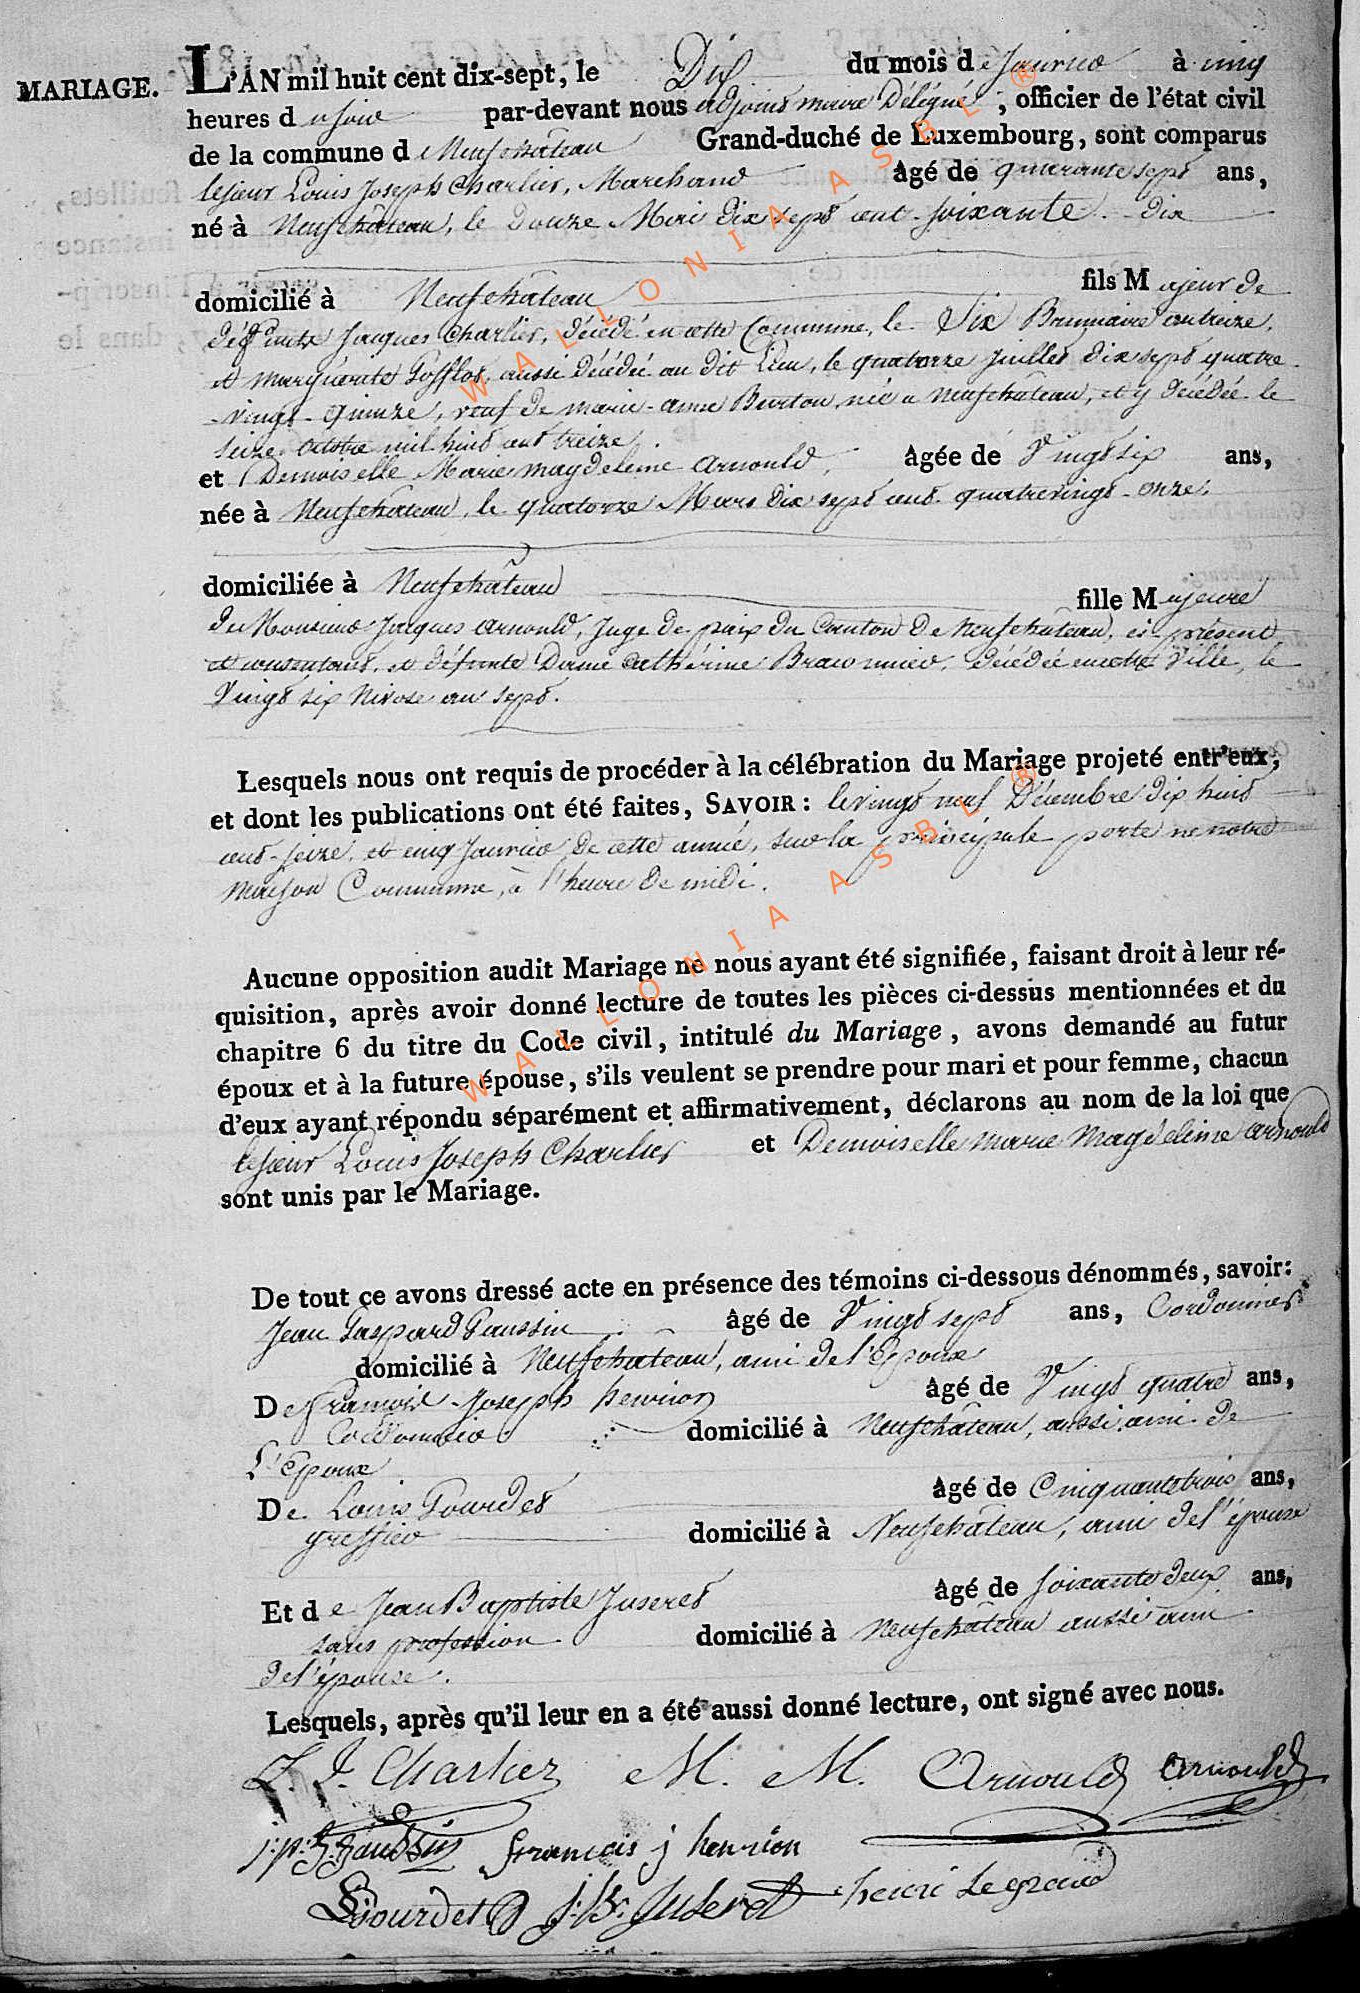 MARIAGE. L'AN mil huit cent dix-sept, le Dix du mois de Janvier à cinq
heures du soir par-devant nous adjoint maire Délégué, officier de l'état civil
de la commune de Neufchâteau Grand-duché de Luxembourg, sont comparus
le sieur Louis Joseph Charlier, Marchand Agé de quarante sept ans,
né à Neufchâteau, le douze Mai dix sept cent soixante-dix
domicilié à Neufchâteau fils Majeur de
défunts Jacques Charlier, décédé en cette Commune, le Six Brumaire an treize,
et marguerite Gofflot, aussi décédée au dit Lieu, le quatorze juillet dix sept quatre-
-vingt-quinze, veuf de marie-anne Burton, née à Neufchâteau, et y décédée le
seize octobre mil huit cent treize.
et Demoiselle Marie magdeleine arnould, Agée de Vingt six ans,
née à Neufchâteau, le quatorze Mars dix sept cent quatrevingt-onze.
domiciliée à Neufchâteau fille Majeure
de Monsieur Jacques arnould, Juge de paix du Canton De Neufchâteau, ci-présent
et consentant, et défunte Dame Cathérine décédée en cette Ville, le
Vingt six Nivose an sept.
Lesquels nous ont requis de procéder à la célébration du Mariage projeté entr'eux,
et dont les publications ont été faites, SAVOIR : le vingt neuf Décembre dix huit
cent-seize, et cinq Janvier de cette année, sur la principale porte de notre
Maison Commune, à l'heure de midi.
Aucune opposition audit Mariage ne nous ayant été signifiée, faisant droit à leur ré-
quisition, après avoir donné lecture de toutes les pièces ci-dessus mentionnées et du
chapitre 6 du titre du Code civil, intitulé du Mariage, avons demandé au futur
époux et à la future épouse, s'ils veulent se prendre pour mari et pour femme, chacun
d'eux ayant répondu séparément et affirmativement, déclarons au nom de la loi que
le sieur Louis Joseph Charlier et Demoiselle marie Magdeleine arnould
sont unis par le Mariage.
De tout ce avons dressé acte en présence des témoins ci-dessous dénommés, savoir:
Jean Gaspard Gaussin âgé de Vingt sept ans, Cordonnier
domicilié à Neufchâteau, ami de l'Epoux
De françois-Joseph henrion âgé de Vingt quatre ans,
Cordonnier domicilié à Neufchâteau, aussi ami de
L'Epoux
De Louis Gourdet âgé de Cinquante trois ans,
greffier domicilié à Neufchâteau, ami de l'épouse
Et de Jean Baptiste Juseret âgé de soixante deux ans,
sans profession domicilié à Neufchâteau aussi ami
de l'épouse.
Lesquels, après qu'il leur en a été aussi donné lecture, ont signé avec nous.
L. J. Charlier M. M. Arnould Arnould
j: p: G: Gaussin françois j henrion
Gourdet J: B: Juseret henri Legrand
WALLONIA ASBL ®
WALLONIA ASBL ®